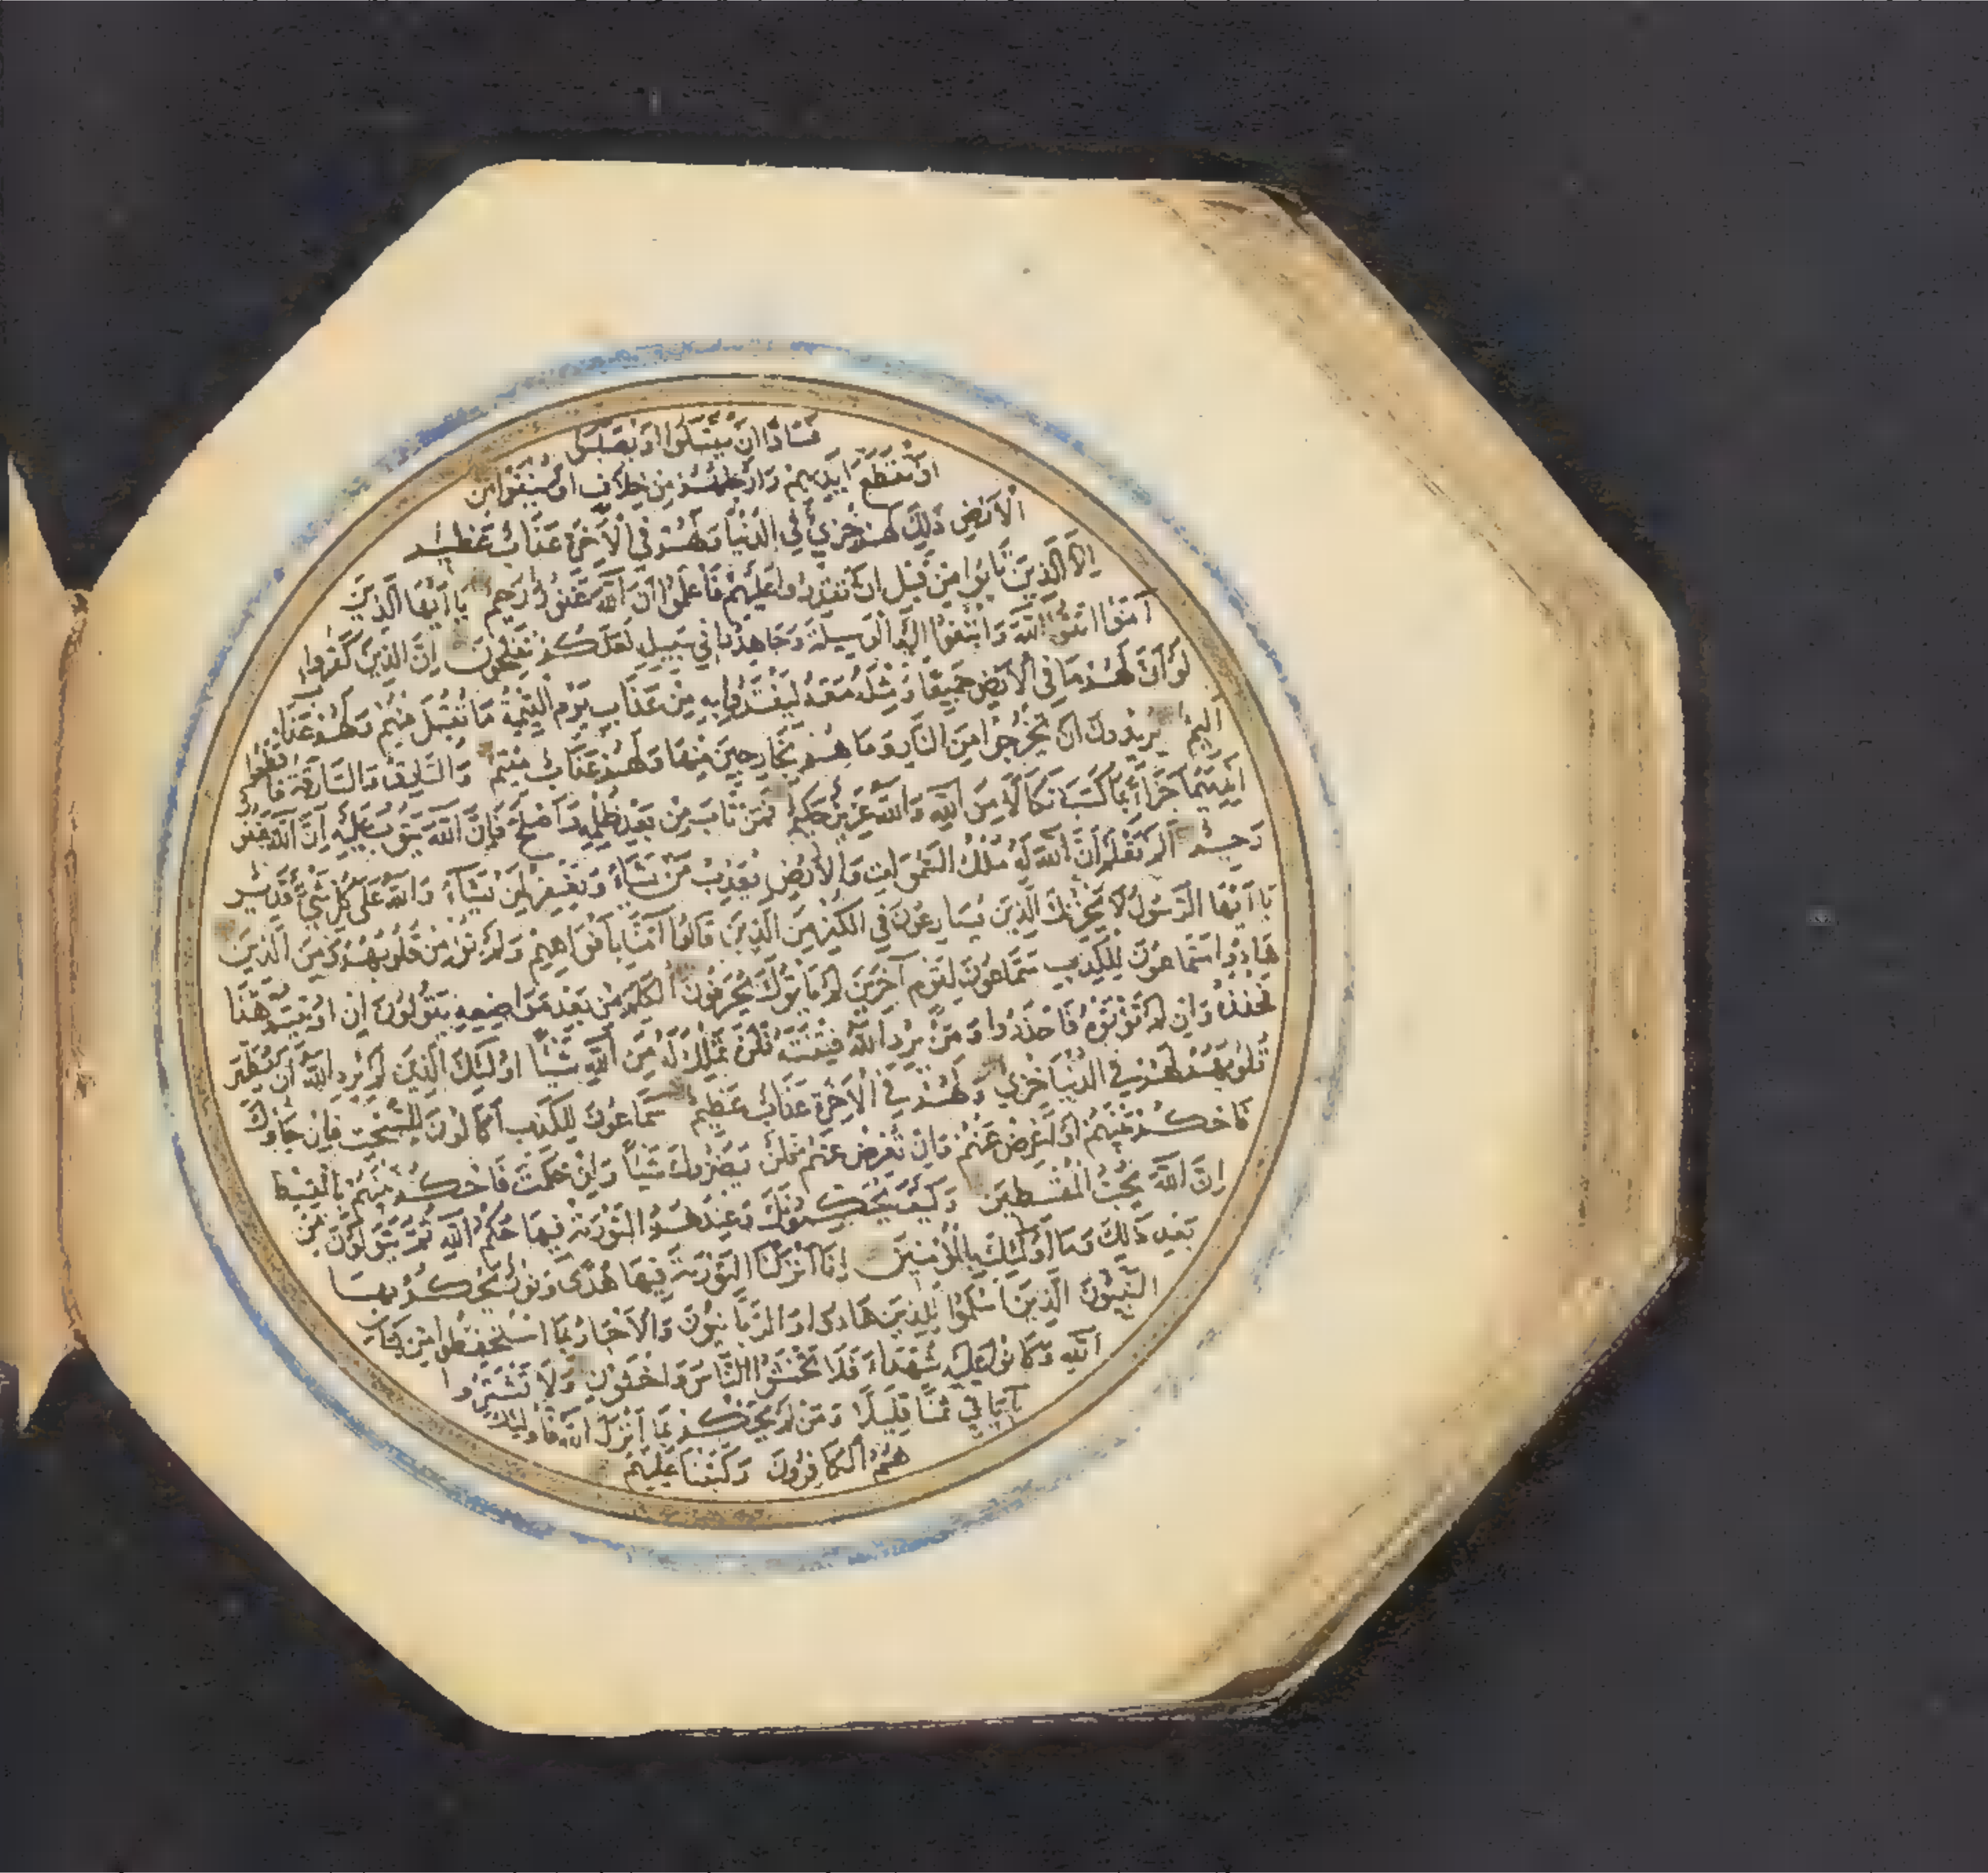 فَسَادًا اَنْ يُقَتَّلُوا اَوْ يُصَلَّبُوا
اَوْ تُقَطَّعَ اَيْدِيهِمْ وَاَرْجُلُهُمْ مِنْ خِلَافٍ اَوْ يُنْفَوْا مِنَ
الْاَرْضِ ذٰلِكَ لَهُمْ خِزْيٌ فِي الدُّنْيَا وَلَهُمْ فِي الْاٰخِرَةِ عَذَابٌ عَظِيمٌ
اِلَّا الَّذِينَ تَابُوا مِنْ قَبْلِ اَنْ تَقْدِرُوا عَلَيْهِمْ فَاعْلَمُوا اَنَّ اللّٰهَ غَفُورٌ رَحِيمٌ يَا اَيُّهَا الَّذِينَ
آمَنُوا اتَّقُوا اللّٰهَ وَابْتَغُوا اِلَيْهِ الْوَسِيلَةَ وَجَاهِدُوا فِي سَبِيلِهِ لَعَلَّكُمْ تُفْلِحُونَ اِنَّ الَّذِينَ كَفَرُوا
لَوْ اَنَّ لَهُمْ مَا فِي الْاَرْضِ جَمِيعًا وَمِثْلَهُ مَعَهُ لِيَفْتَدُوا بِهِ مِنْ عَذَابِ يَوْمِ الْقِيٰمَةِ مَا تُقُبِّلَ مِنْهُمْ وَلَهُمْ عَذَابٌ
اَلِيمٌ يُرِيدُونَ اَنْ يَخْرُجُوا مِنَ النَّارِ وَمَا هُمْ بِخَارِجِينَ مِنْهَا وَلَهُمْ عَذَابٌ مُقِيمٌ وَالسَّارِقُ وَالسَّارِقَةُ فَاقْطَعُوا
اَيْدِيَهُمَا جَزَاءً بِمَا كَسَبَا نَكَالًا مِنَ اللّٰهِ وَاللّٰهُ عَزِيزٌ حَكِيمٌ فَمَنْ تَابَ مِنْ بَعْدِ ظُلْمِهِ وَاَصْلَحَ فَاِنَّ اللّٰهَ يَتُوبُ عَلَيْهِ اِنَّ اللّٰهَ غَفُورٌ
رَحِيمٌ اَلَمْ تَعْلَمْ اَنَّ اللّٰهَ لَهُ مُلْكُ السَّمٰوَاتِ وَالْاَرْضِ يُعَذِّبُ مَنْ يَشَاءُ وَيَغْفِرُ لِمَنْ يَشَاءُ وَاللّٰهُ عَلٰى كُلِّ شَيْءٍ قَدِيرٌ
يَا اَيُّهَا الرَّسُولُ لَا يَحْزُنْكَ الَّذِينَ يُسَارِعُونَ فِي الْكُفْرِ مِنَ الَّذِينَ قَالُوا آمَنَّا بِاَفْوَاهِهِمْ وَلَمْ تُؤْمِنْ قُلُوبُهُمْ وَمِنَ الَّذِينَ
هَادُوا سَمَّاعُونَ لِلْكَذِبِ سَمَّاعُونَ لِقَوْمٍ آخَرِينَ لَمْ يَأْتُوكَ يُحَرِّفُونَ الْكَلِمَ مِنْ بَعْدِ مَوَاضِعِهِ يَقُولُونَ اِنْ اُوتِيتُمْ هٰذَا
فَخُذُوهُ وَاِنْ لَمْ تُؤْتَوْهُ فَاحْذَرُوا وَمَنْ يُرِدِ اللّٰهُ فِتْنَتَهُ فَلَنْ تَمْلِكَ لَهُ مِنَ اللّٰهِ شَيْئًا اُولٰئِكَ الَّذِينَ لَمْ يُرِدِ اللّٰهُ اَنْ يُطَهِّرَ
قُلُوبَهُمْ لَهُمْ فِي الدُّنْيَا خِزْيٌ وَلَهُمْ فِي الْاٰخِرَةِ عَذَابٌ عَظِيمٌ سَمَّاعُونَ لِلْكَذِبِ اَكَّالُونَ لِلسُّحْتِ فَاِنْ جَاؤُكَ
فَاحْكُمْ بَيْنَهُمْ اَوْ اَعْرِضْ عَنْهُمْ وَاِنْ تُعْرِضْ عَنْهُمْ فَلَنْ يَضُرُّوكَ شَيْئًا وَاِنْ حَكَمْتَ فَاحْكُمْ بَيْنَهُمْ بِالْقِسْطِ
اِنَّ اللّٰهَ يُحِبُّ الْمُقْسِطِينَ وَكَيْفَ يُحَكِّمُونَكَ وَعِنْدَهُمُ التَّوْرٰيةُ فِيهَا حُكْمُ اللّٰهِ ثُمَّ يَتَوَلَّوْنَ مِنْ
بَعْدِ ذٰلِكَ وَمَا اُولٰئِكَ بِالْمُؤْمِنِينَ اِنَّا اَنْزَلْنَا التَّوْرٰيةَ فِيهَا هُدًى وَنُورٌ يَحْكُمُ بِهَا
النَّبِيُّونَ الَّذِينَ اَسْلَمُوا لِلَّذِينَ هَادُوا وَالرَّبَّانِيُّونَ وَالْاَحْبَارُ بِمَا اسْتُحْفِظُوا مِنْ كِتَابِ
اللّٰهِ وَكَانُوا عَلَيْهِ شُهَدَاءَ فَلَا تَخْشَوُا النَّاسَ وَاخْشَوْنِ وَلَا تَشْتَرُوا
بِآيَاتِي ثَمَنًا قَلِيلًا وَمَنْ لَمْ يَحْكُمْ بِمَا اَنْزَلَ اللّٰهُ فَاُولٰئِكَ
هُمُ الْكَافِرُونَ وَكَتَبْنَا عَلَيْهِمْ